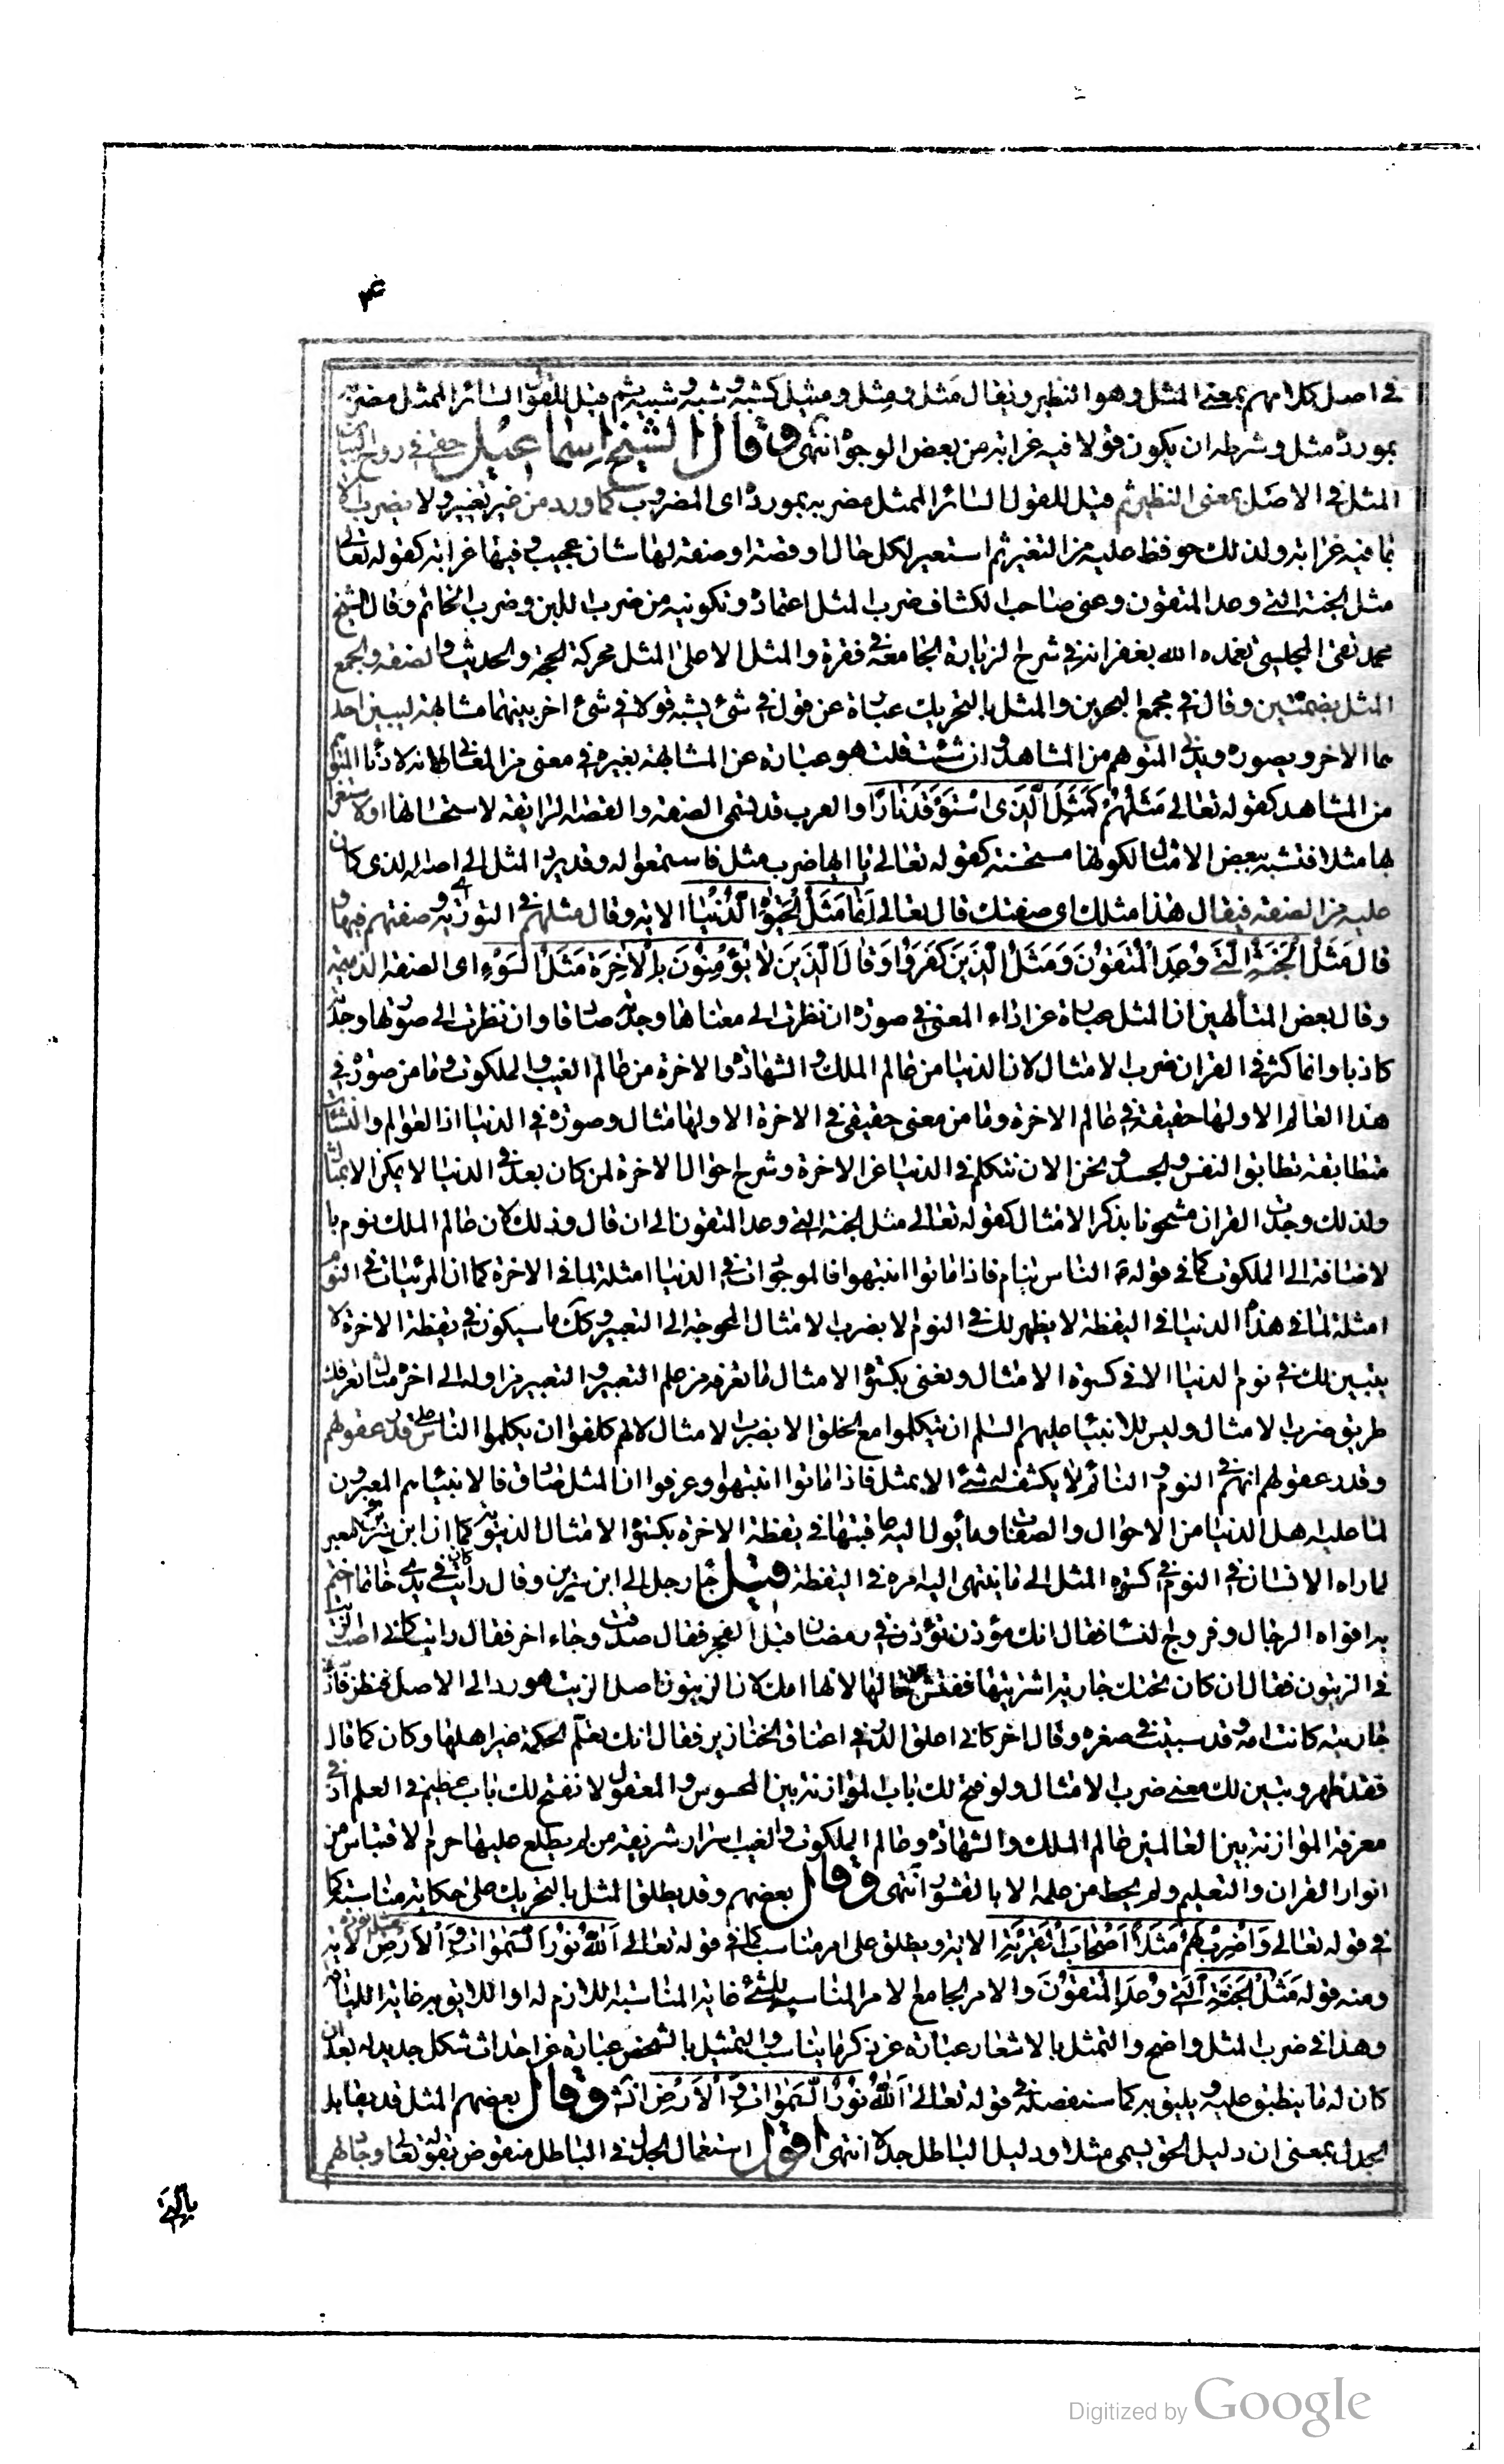 ۴
في اصل كلامهم بمعنى المثل وهو النظير ويقال مَثَل ومِثل ومثيل كشبه وشبه وشبيه ثم قيل للقول السائر الممثل مضربه
بمورده مثل وشرطه ان يكون قولا فيه غرابة من بعض الوجوه انتهى وقال الشيخ اسماعيل حقي في روح البيان
المثل في الاصل بمعنى النظير ثم قيل للقول السائر الممثل مضربه بمورده اى المضروب كما ورد من غير تغيير ولا يضرب الا
بما فيه غرابة ولذلك حوفظ عليه من التغير ثم استعير لكل حال او قصة او صفة لها شان عجيب وفيها غرابة كقوله تعالى
مثل الجنة التي وعد المتقون وعنى صاحب الكشاف ضرب المثل اعتماده وتكوينه من ضرب اللبن وضرب الخاتم وقال الشيخ
محمد تقى المجلسى تغمده الله بغفرانه في شرح الزيارة الجامعة في فقرة والمثل الاعلى المثل محركة الحجة والحديث والصفة والجمع
المثل بضمتين وقال في مجمع البحرين والمثل بالتحريك عبارة عن قول في شئ يشبه قولا في شئ اخر بينهما مشابهة ليبين احد
هما الاخر ويصوره ويدنى المتوهم من المشاهد وان شئت قلت هو عبارة عن المشابهة بغيره في معنى من المعانى لانه لادناء المتوهم
من المشاهد كقوله تعالى مَثَلُهُمْ كَمَثَلِ الَّذِى اسْتَوْقَدَ نَارًا والعرب قد تسمى الصفة والقصة الرايقة لاستحسانها او لاستغرابـ
ها مثلا فتشبه ببعض الامثال لكونها مستحسنة كقوله تعالى يا ايها ضرب مثل فاستمعوا له وقد يرد المثل الى اصله الذى كان
عليه من الصفة فيقال هذا مثلك اى صفتك قال تعالى اِنَّمَا مَثَلُ الْحَيٰوةِ الدُّنْيَا الاية وقال مثلهم في التورية اى صفتهم فيها و
قال مَثَلُ الْجَنَّةِ الَّتِى وُعِدَ الْمُتَّقُونَ وَمَثَلُ الَّذِينَ كَفَرُوا وَقال الَّذِينَ لَا يُؤْمِنُونَ بِالْاٰخِرَةِ مَثَلُ السَّوْءِ اى الصفة الذميمة
وقال بعض المتألهين ان المثل عبارة عن اداء المعنى في صورة ان نظرت الى معناها وجدته صادقا وان نظرت الى صورتها وجدته
كاذبا وانما كثر في القران ضرب الامثال لان الدنيا من عالم الملك والشهادة والاخرة من عالم الغيب والملكوت وما من صورة في
هذا العالم الا ولها حقيقة في عالم الاخرة وما من معنى حقيقى في الاخرة الا ولها مثال وصورة في الدنيا اذ العوالم والنشآت
متطابقة تطابق النفس والجسد ونحن الان نتكلم في الدنيا عن الاخرة وشرح احوال الاخرة لمن كان بعد في الدنيا لا يمكن الا بمثال
ولذلك وجدت القران مشحونا بذكر الامثال كقوله تعالى مثل الجنة التي وعد المتقون الى ان قال وذلك لان عالم الملك نوم با
لاضافة الى الملكوت كما في قوله ص الناس نيام فاذا ماتوا انتبهوا فالموجودات في الدنيا امثلة لما في الاخرة كما ان المرئيات في النوم
امثلة لما في هذه الدنيا في اليقظة لا يظهر لك في النوم الا بضرب الامثال المحوجة الى التعبير وكك ما سيكون في يقظة الاخرة لا
يتبين لك في نوم الدنيا الا في كسوة الامثال ونعنى بكسوة الامثال ما تعرفه من علم التعبير والتعبير من اوله الى اخره مثال تعرفك
طريق ضرب الامثال وليس للانبياء عليهم السلم ان يتكلموا مع الخلق الا بضرب الامثال لانهم كلفوا ان يكلموا الناس على قدر عقولهم
وقدر عقولهم انهم في النوم والنائم لا يكشف له شئ الا بمثل فاذا ماتوا انتبهوا وعرفوا ان المثل صادق فالانبياء هم المعبرون
لما عليه اهل الدنيا من الاحوال والصفات وما يؤل اليه عاقبتها في يقظة الاخرة بكسوة الامثال الدنيوية كما ان ابن سيرين يعبر
لما راه الانسان في النوم في كسوة المثل الى ما ينتهى اليه امره في اليقظة قيل جاء رجل الى ابن سيرين وقال رأيت كان في يدى خاتما اختم
به افواه الرجال وفروج النسا فقال انك مؤذن تؤذن في رمضان قبل الفجر فقال صدقت وجاء اخر فقال رايت كانى اصب الزيت
في الزيتون فقال ان كان تحتك جارية اشتريتها ففتش عن حالها لانها امك لان الزيتون اصل الزيت فهو رد الى الاصل فنظر فاذا
جاريته كانت امه وقد سبيت في صغره وقال اخر كانى اعلق الدر في اعناق الخنازير فقال انك تعلم الحكمة غير اهلها وكان كما قال
فقد ظهر وتبين لك معنى ضرب الامثال ولو فتح لك باب الموازنة بين المحسوس والمعقول لانفتح لك باب عظيم في العلم اذ في
معرفة الموازنة بين العالمين عالم الملك والشهادة وعالم الملكوت والغيب اسرار شريفة من لم يطلع عليها حرم الاقتباس من
انوار القران والتعليم ولم يحط من علمه الا بالقشور انتهى وقال بعضهم وقد يطلق المثل بالتحريك على حكاية مناسبة كما
في قوله تعالى وَاضْرِبْ لَهُمْ مَثَلًا اَصْحَابَ الْقَرْيَةِ الاية ويطلق على امر مناسب كما في قوله تعالى اَللهُ نُورُ السَّمٰوَاتِ وَالْاَرْضِ مثل نوره الاية
ومنه قوله مَثَلُ الْجَنَّةِ الَّتِى وُعِدَ الْمُتَّقُونَ والامر الجامع الامر المناسب للشئ غاية المناسبة اللازم له او اللايق به غاية اللياقة
وهذا في ضرب المثل واضح والتمثل بالاشعار عبارة عن ذكرها يناسب والتمثيل بالشخص عبارة عن احداث شكل جديد له بعد ان
كان له ما ينطبق عليه ويليق به كما سنفصله في قوله تعالى اَللهُ نُورُ السَّمٰوَاتِ وَالْاَرْضِ انش وقال بعضهم المثل قد يقابل
الجدل بمعنى ان دليل الحق يسمى مثلا ودليل الباطل جدلا انتهى اقول استعمال الجدل في الباطل منقوض بقوله تعالى وجادلهم
بالتي
Digitized by Google